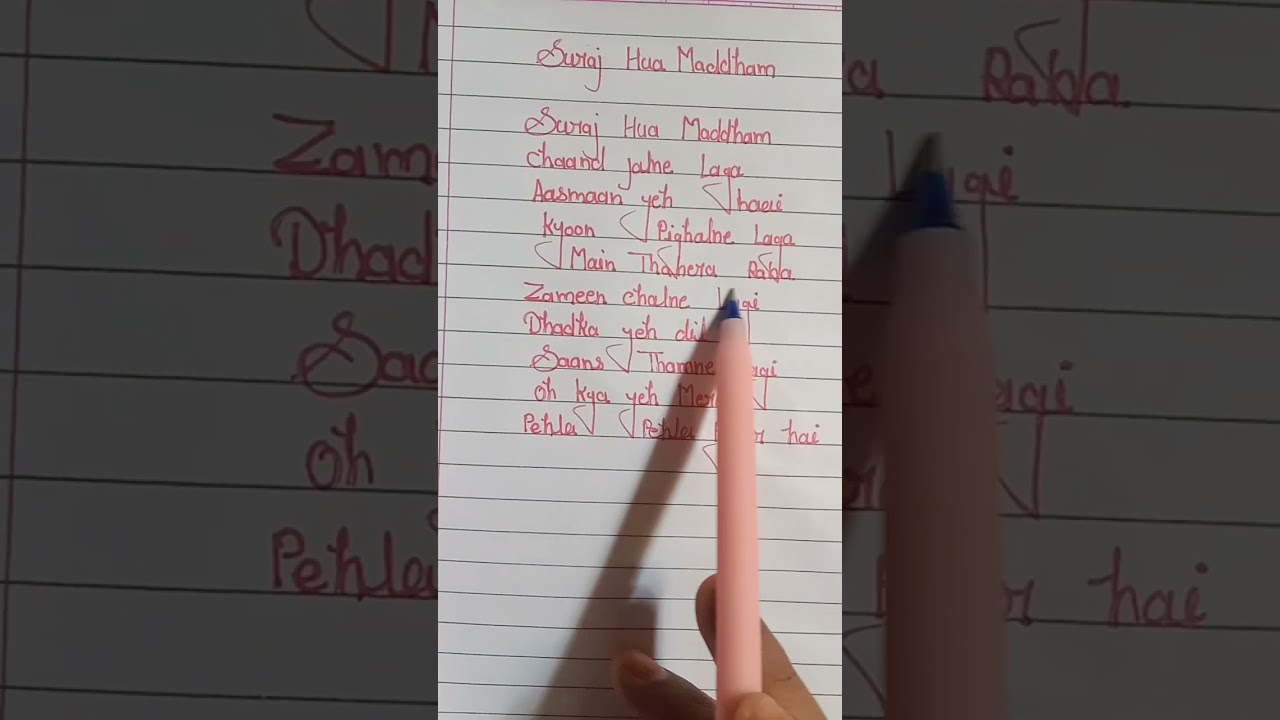 Suraj Hua Maddham
Suraj Hua Maddham
Chaand jalne Laga
Aasmaan yeh
Kyoon Pighalne Laga
Main Thahera Raha
Zameen chalne
Dhadka yeh dil
Saans Thamne
Oh kya yeh
Pehla Pehla hai